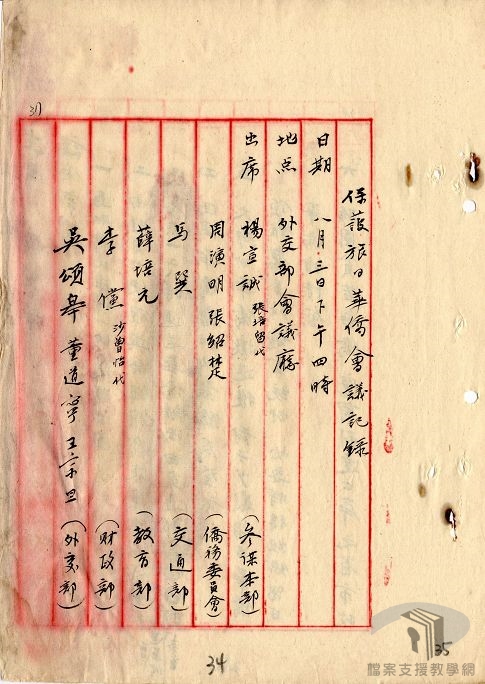 保護旅日華僑會議記錄
日期 八月三日下午四時
地点 外交部會議廳
出席 楊宣誠 張培留代 (參謀本部)
周演明 張紹楚 (僑務委員會)
馬巽 (交通部)
薛培元 (教育部)
李儻 沙曾怡代 (財政部)
吳頌皋 董道寧 王宗旦 (外交部)
34
35
檔案支援教學網